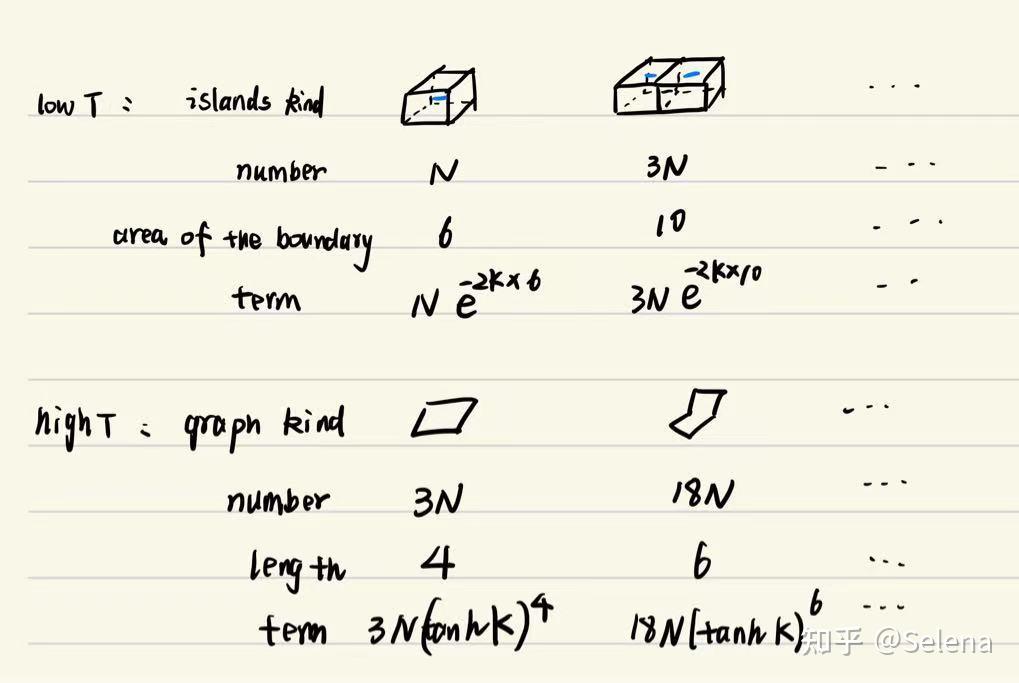 low T : islands kind ...
number N 3N - ...
area of the boundary 6 10 ...
term N e^{-2K×6} 3N e^{-2K×10} ...
high T : graph kind ...
number 3N 18N ...
length 4 6 ...
term 3N(tanh K)^4 18N(tanh K)^6 ...
知乎 @Selena